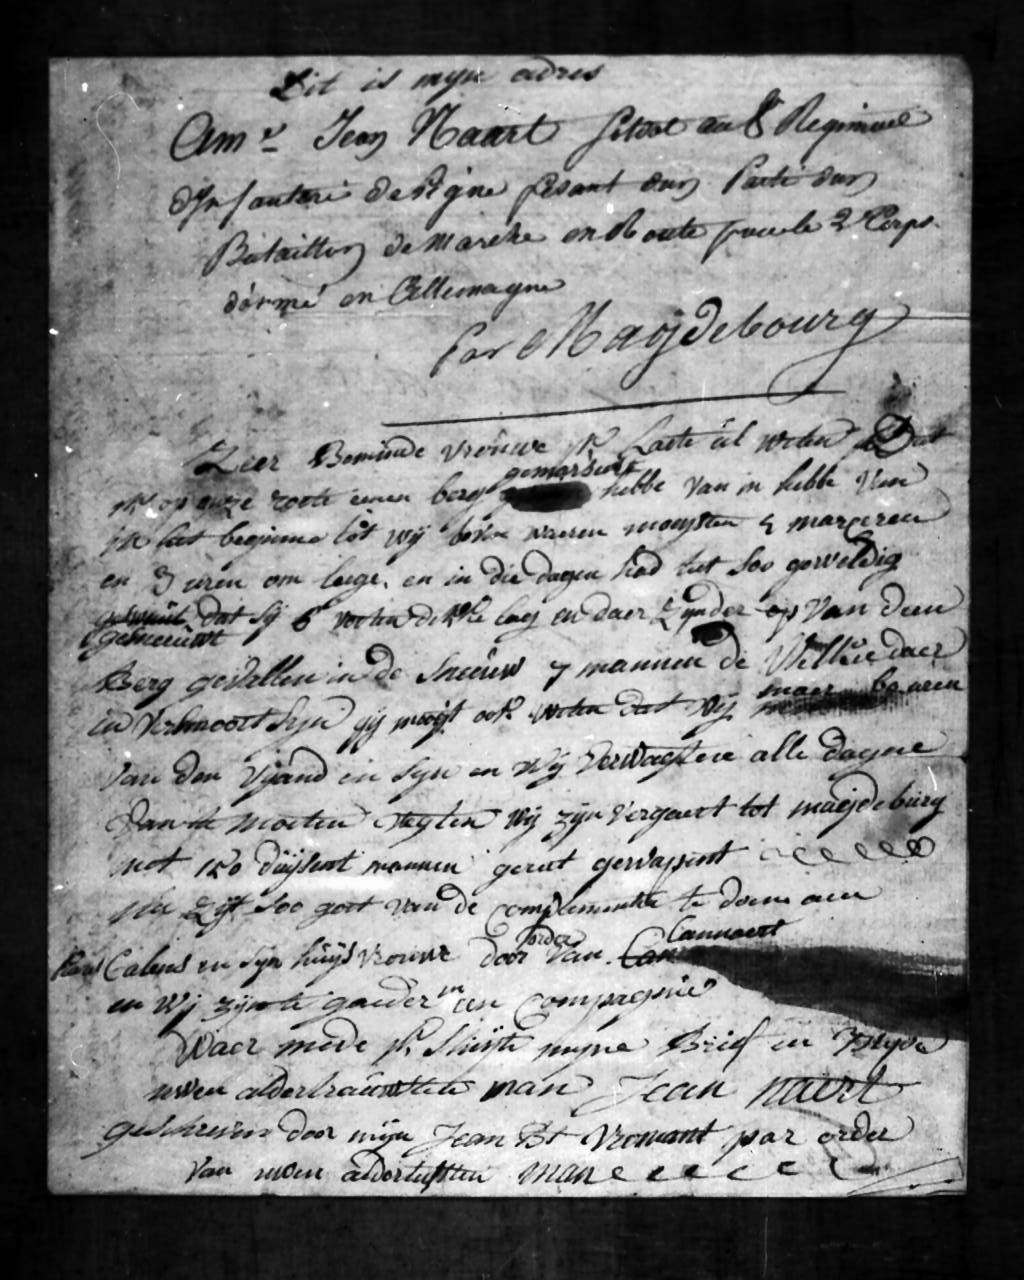 Dit is mijn adres
Am.r Jean Naart soldat au 8 Regiment
d'Infanterie de ligne fesant dun Partie dun
Bataillon de Marche en Route pour le 2 Corps
d'armé en Allemagne
par Magdebourg
Zeer Beminde vrouwe ik Laete ul weten Dat
ik op onze roote eenen berg gemarseert hebbe van in hebbe van
ik het beginne tot wij boven waeren moesten 5 marceren
en 3 uren om leege. en in die dagen had het soo geweldig
gesneeuwt dat sij 6 voeten dikke lag en daer zijnder op van den
Berg gevallen in de sneeuw 7 mannen de Welke daer
in versmoort sijn gij moogt ook weten dat wij maer bo uren
van den vijand en sijn en wij verwagten alle dagen
dan te moeten vegten wij zijn vergaert tot magdeburg
met 150 duijsent mannen gerut gewapent
zijt soo goet van de complimenten te doen aen
Calens en sijn huijsvrouwe door order van Cannaert
en wij zijn te gaeder in een Compagnie
Waer mede ik sluijte mijne Brief en blijve
uwen alderliefsten man Jean naert
geschreven door mijn Jean Bt Vromant par order
van uwen alderliefsten man